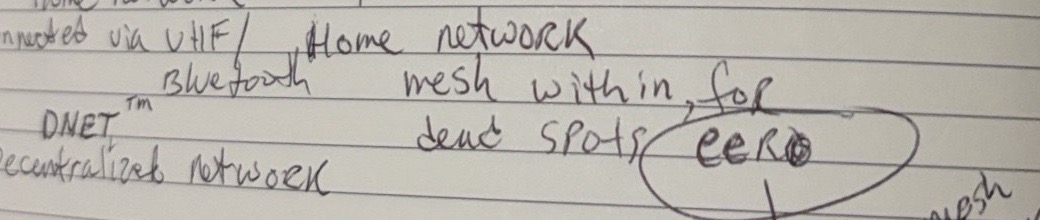 nnected via VHF/
Bluetooth
DNET™
ecentralized network
, Home network
mesh within, for
dead spots
eero
mesh